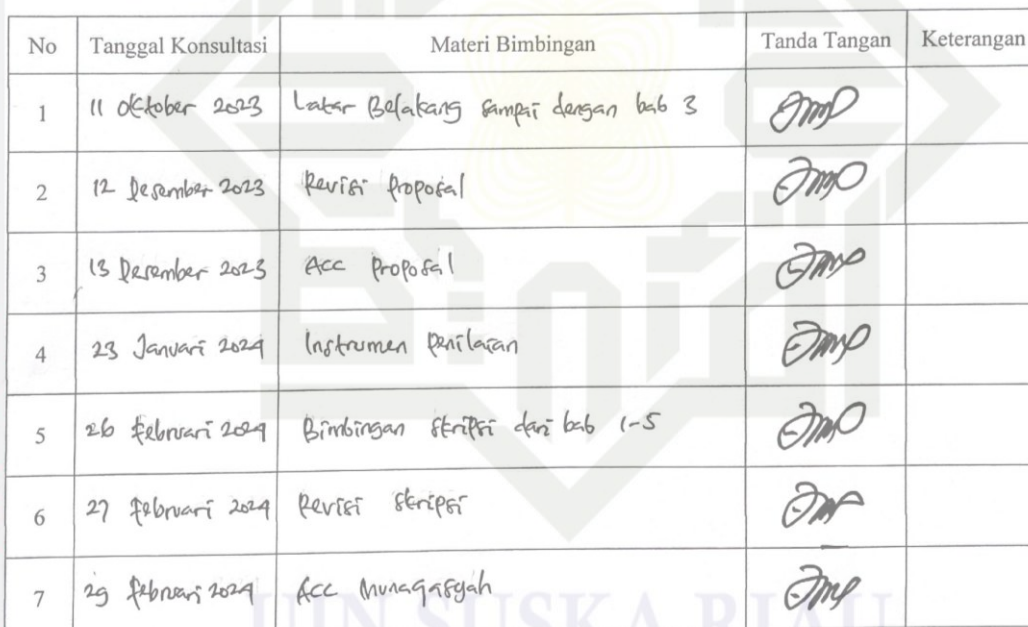 No Tanggal Konsultasi Materi Bimbingan Tanda Tangan Keterangan
1 11 Oktober 2023 Latar Belakang sampai dengan bab 3
2 12 Desember 2023 Revisi Proposal
3 13 Desember 2023 Acc Proposal
4 23 Januari 2024 Instrumen Penilaian
5 26 Februari 2024 Bimbingan Skripsi dari bab 1-5
6 27 Februari 2024 Revisi Skripsi
7 29 Februari 2024 Acc Munaqasyah
UIN SUSKA RIAU